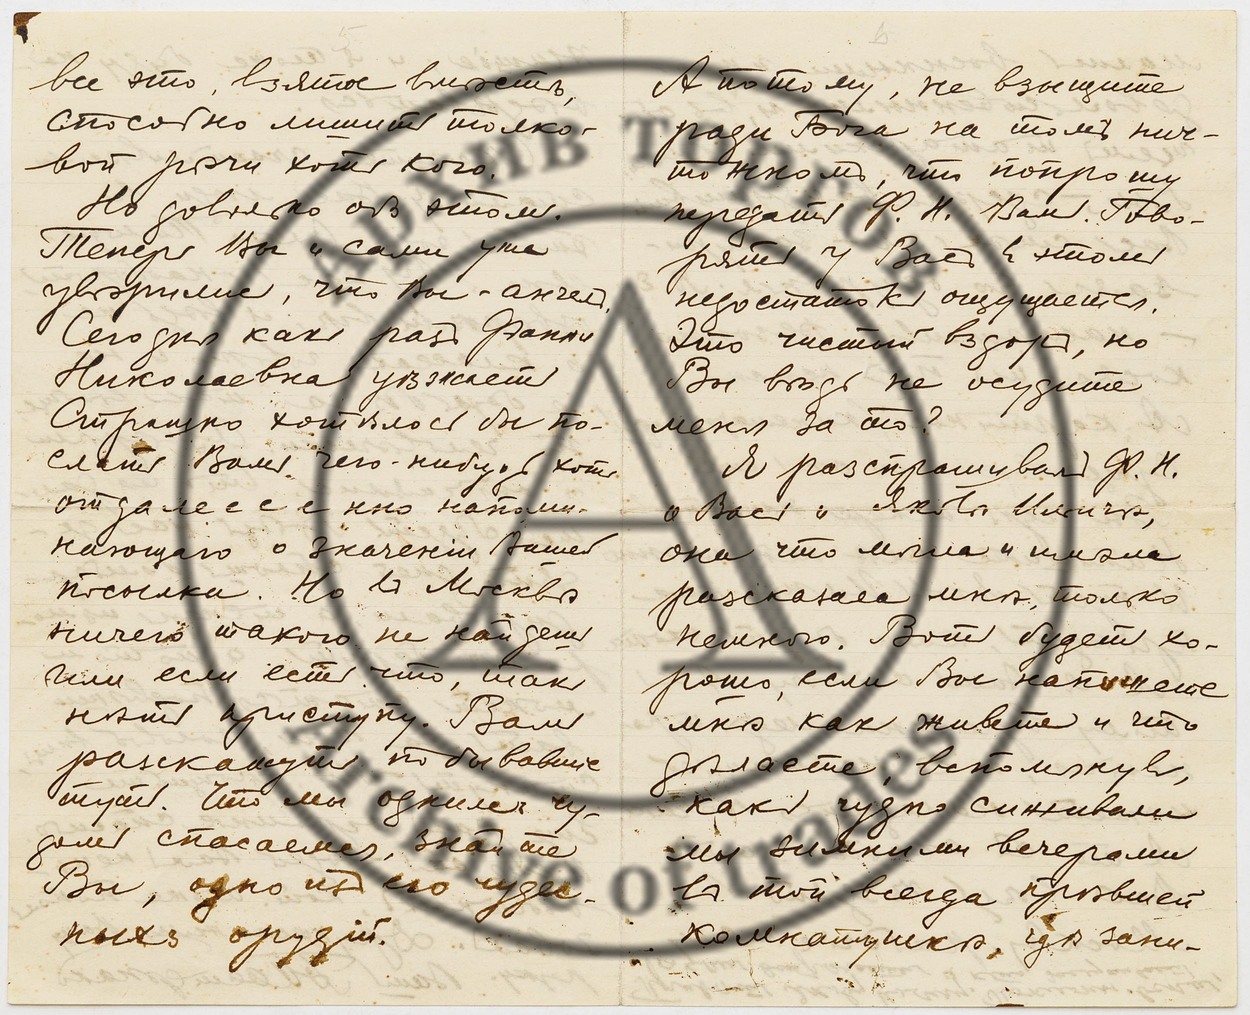 все это, взятое вместѣ,
способно лишить толко-
вой рѣчи хоть кого.
Но довольно объ этомъ.
Теперь Вы и сами уже
увѣрились, что Вы - ангелъ.
Сегодня какъ разъ Фанни
Николаевна уѣзжаетъ
Страшно хотѣлось бы по-
слать Вамъ чего-нибудь хоть
отдалессенно напоми-
нающаго о значеніи Вашей
посылки. Но въ Москвѣ
ничего такого не найдешь
или если есть что, такъ
нѣтъ приступу. Вамъ
разскажутъ побывавшіе
тутъ. Что мы однимъ чу-
домъ спасаемся, знайте
Вы, одно изъ его чудес-
ныхъ орудій.
А потому, не взыщите
ради Бога на томъ нич-
тожномъ, что попрошу
передать Ф. Н. Вамъ. Гово-
рятъ у Васъ въ этомъ
недостатокъ ощущается.
Это чистый вздоръ, но
Вы вѣдь не осудите
меня за то?
Я разспрашивалъ Ф. Н.
о Васъ и Яковѣ Ильичѣ,
она что могла и умѣла
разсказала мнѣ, только
немного. Вотъ будетъ хо-
рошо, если Вы напишете
мнѣ какъ живете и что
дѣлаете, вспомянувъ,
какъ чудно сиживали
мы зимними вечерами
въ той всегда прѣвшей
комнатушкѣ, гдѣ зани-
Архив торгов
Archive of trades
A